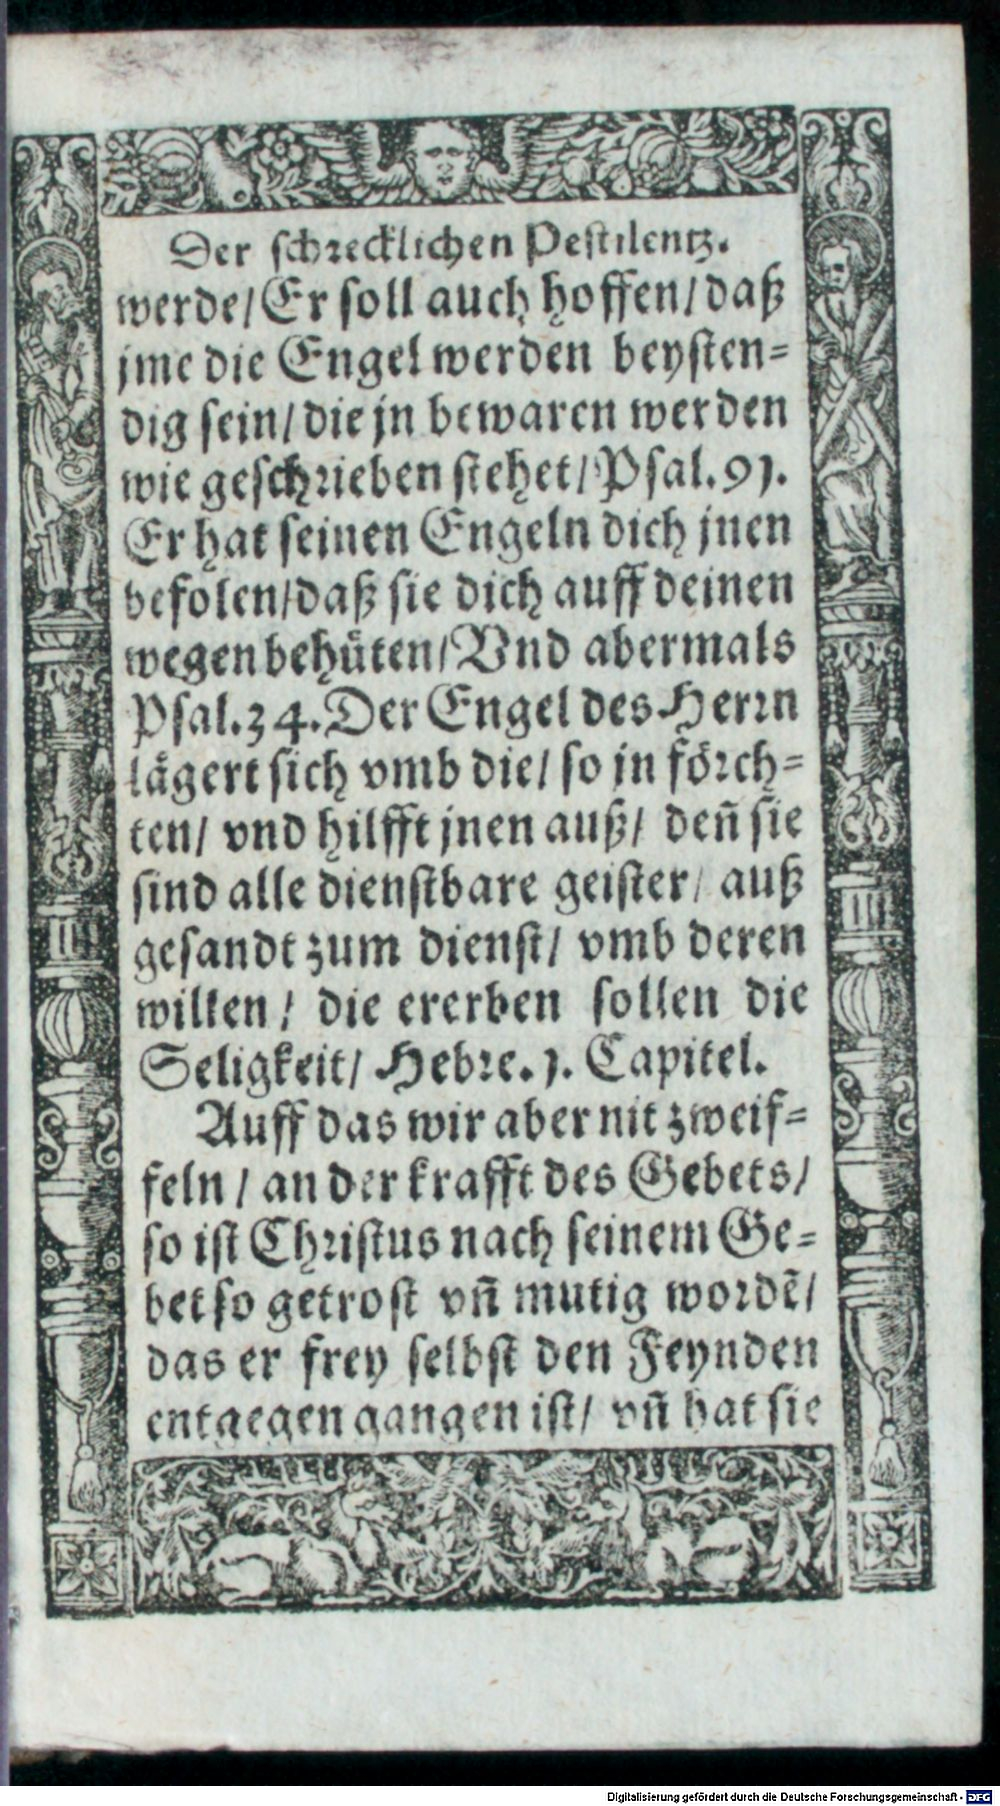 Der schrecklichen Pestilentz.
werde/ Er soll auch hoffen/ daß
jme die Engel werden beysten-
dig sein/ die jn bewaren werden
wie geschrieben stehet/ Psal. 91.
Er hat seinen Engeln dich jnen
befolen/ daß sie dich auff deinen
wegen behüten/ Vnd abermals
Psal. 34. Der Engel des Herrn
lägert sich vmb die/ so jn förch-
ten/ vnd hilfft jnen auß/ deñ sie
sind alle dienstbare geister/ auß
gesandt zum dienst/ vmb deren
willen/ die ererben sollen die
Seligkeit/ Hebre. 1. Capitel.
Auff das wir aber nit zweif-
feln/ an der krafft des Gebets/
so ist Christus nach seinem Ge-
bet so getrost vñ mutig wordẽ/
das er frey selbst den Feynden
entgegen gangen ist/ vñ hat sie
Digitalisierung gefördert durch die Deutsche Forschungsgemeinschaft - DFG